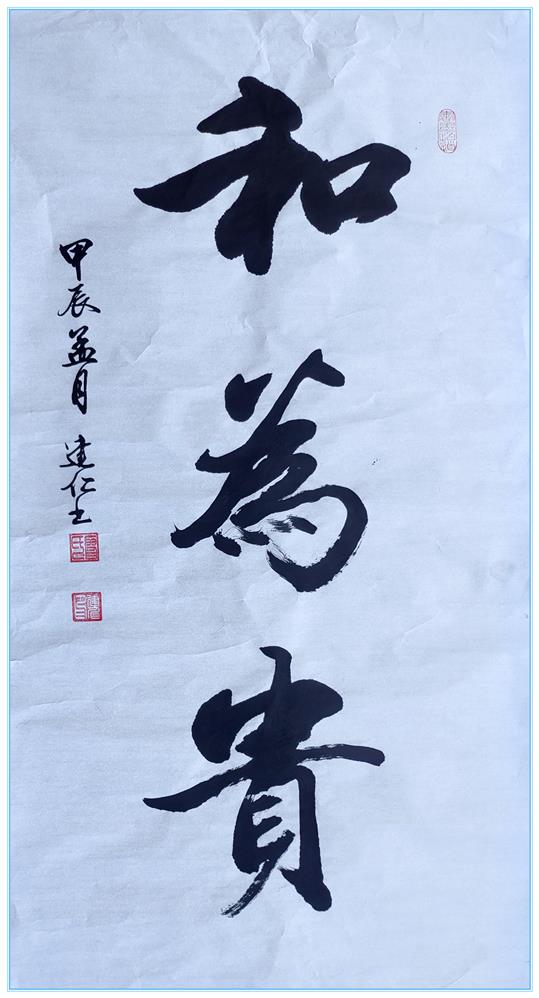 和為貴
甲辰孟月 建仁书